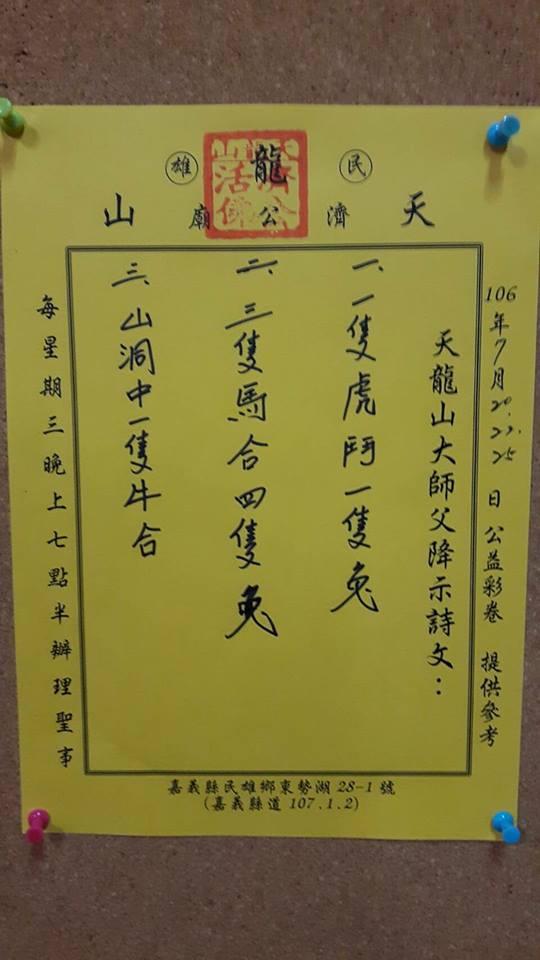 民 龍 雄
天濟公廟山
106年7月20.22.25日公益彩卷 提供參考
天龍山大師父降示詩文：
一、一隻虎鬥一隻兔
二、三隻馬合四隻兔
三、山洞中一隻牛合
每星期三晚上七點半辦理聖事
嘉義縣民雄鄉東勢湖28-1號
(嘉義縣道107.1.2)